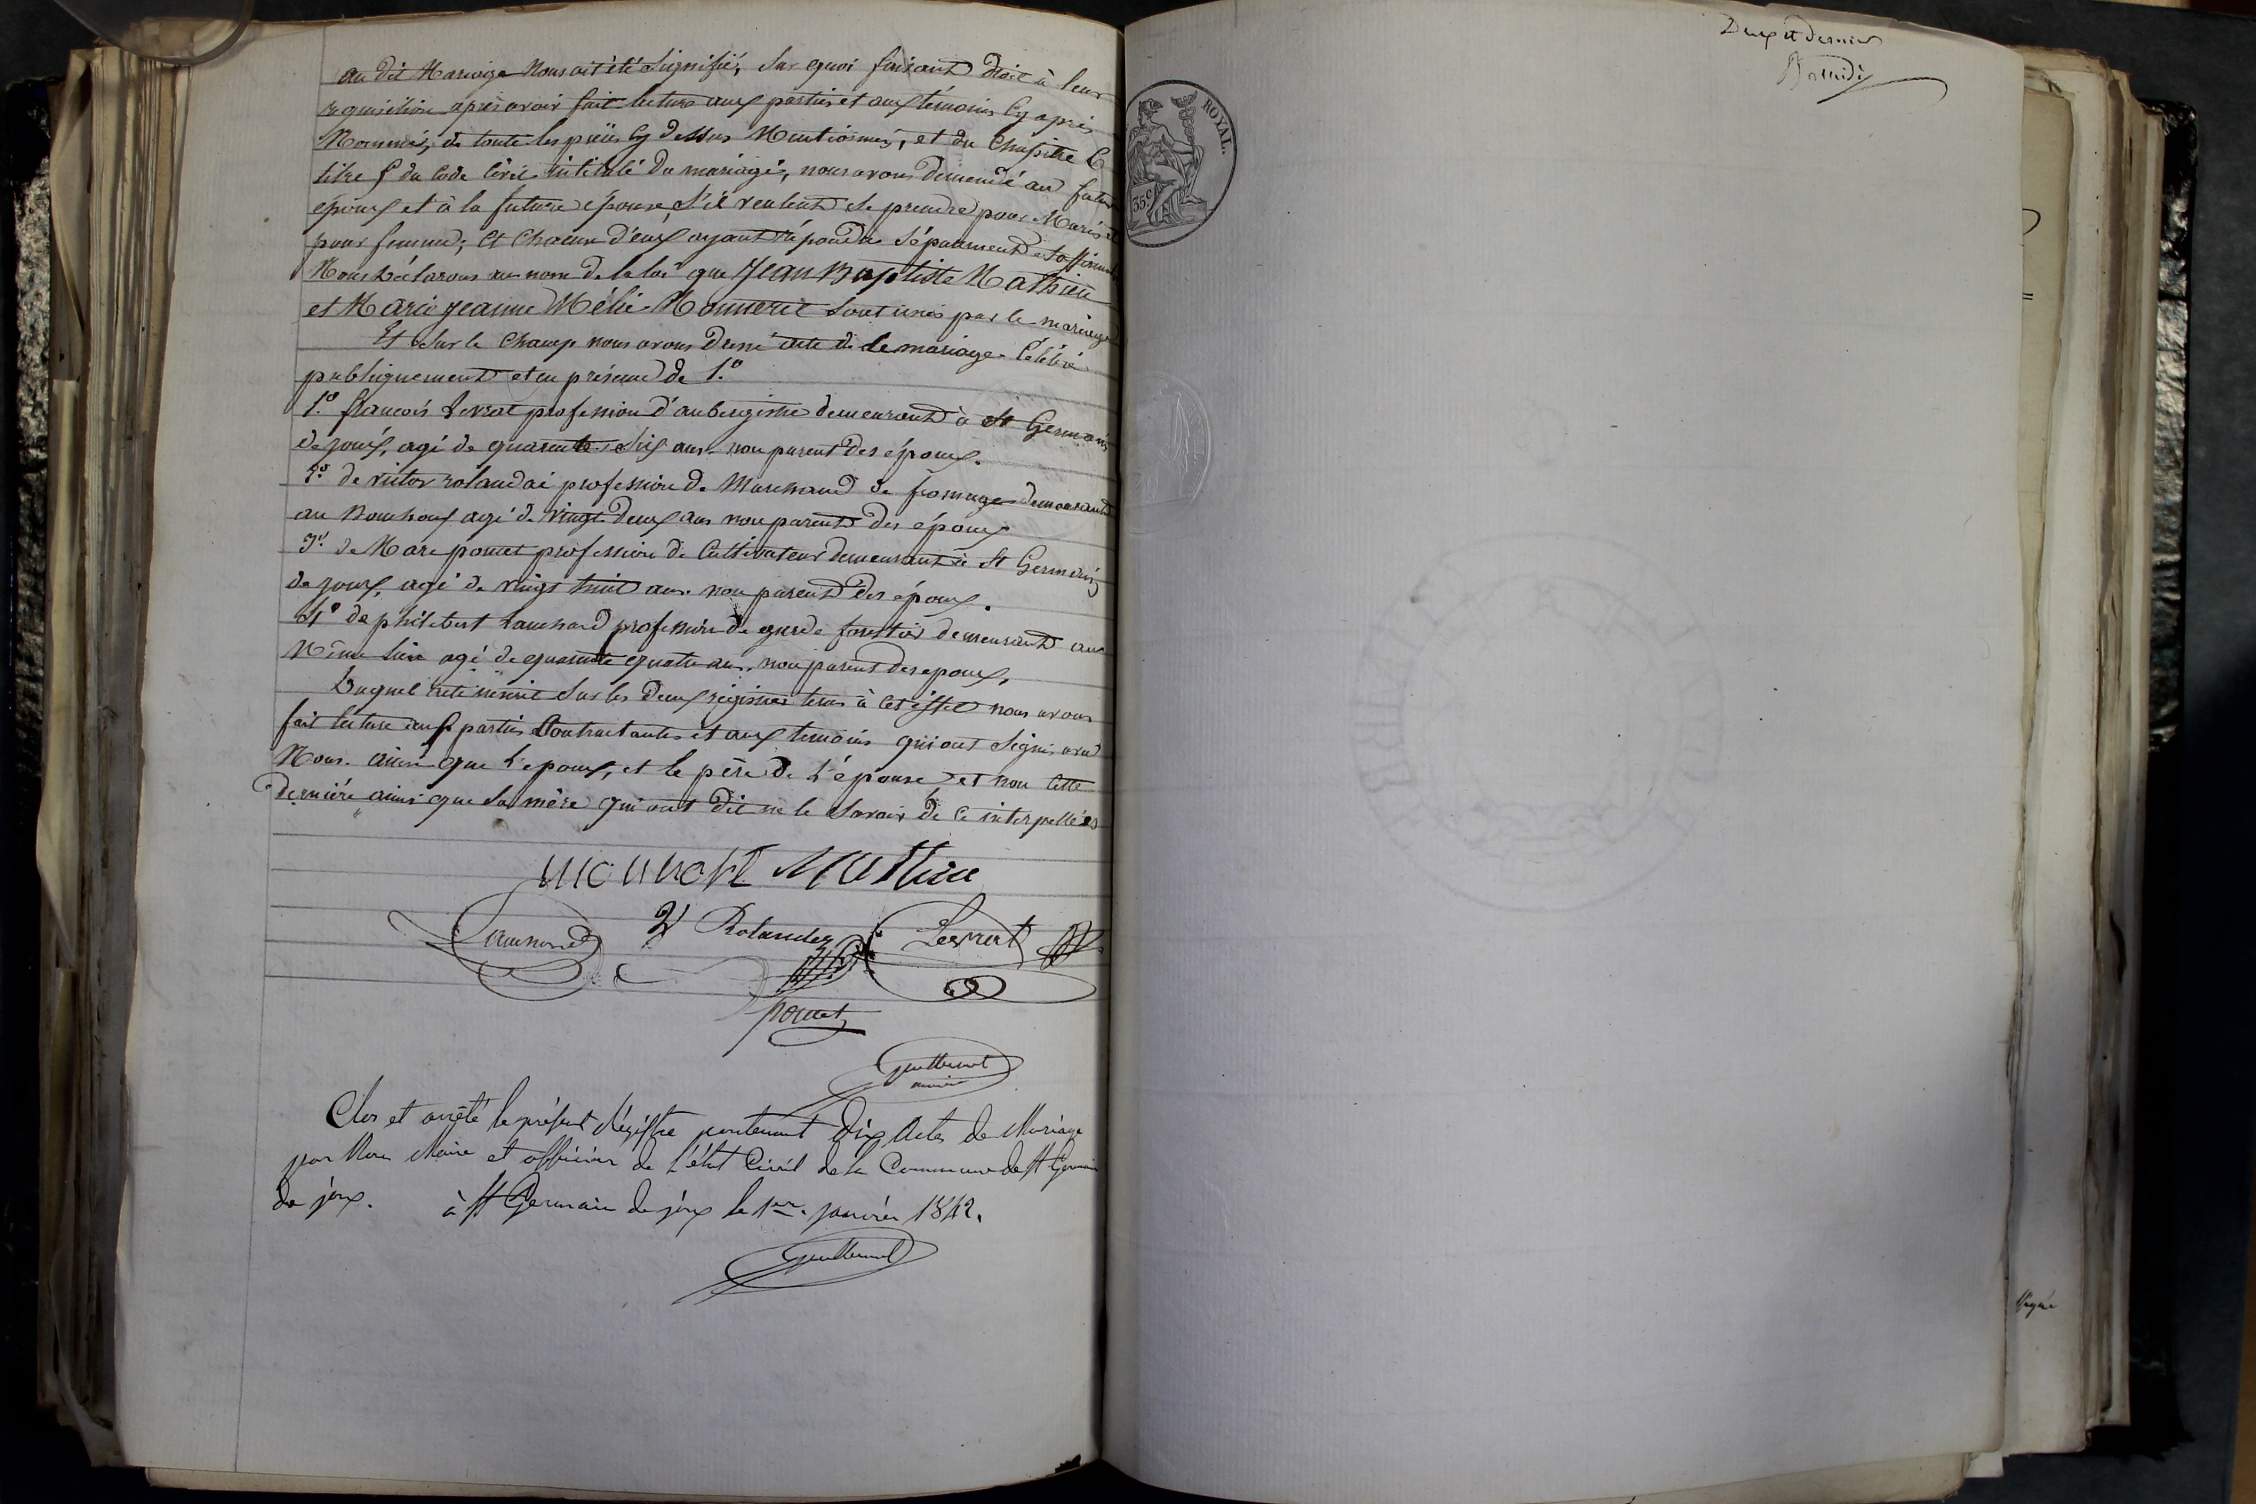 au dit Mariage nous ait été signifié, sur quoi faisant droit à leur
requisition après avoir fait lecture aux parties et aux témoins cy après
Nommés, de toute les pièces cy dessus Mentionnés, et du Chapitre 6
titre 5 du Code Civil intitulé du mariage, nous avons demendé au futur
époux et à la future épouse, s'il veulent se prendre pour Maris et
pour femme; et chacun d'eux ayant répondu séparement et affirmat
Nous déclarons au nom de la loi que Jean Baptiste Mathieu
et Marie Jeanne Mélie Monneret sont unis par le mariage
Et sur le champ nous avons dressé acte de le mariage Célébré
publiquement et en présence de 1.º
1.º françois Levrat profession d'aubergiste demeurant à St Germain
de joux, agé de quarente six ans non parent des époux.
2.º de victor rolandez profession de Marchand de fromage demeurant
au agé de vingt deux ans non parent des époux
3.º de Marc ponet profession de Cultivateur demeurant à St Germain
de joux, agé de vingt huit ans. non parent des époux.
4º de philibert profession de garde forestier demeurant au
Même lieu agé de quarante quatre ans, non parent des epoux,
Duquel acte inscrit sur les deux régistres tenus à cet effet nous avons
fait lecture aux parties Contractantes et aux temoins qui ont signé avec
Nous. ainsi que L'epoux, et le père de L'épouse et non cette
dernière ainsi que sa mère qui ont dit ne le savoir de ce interpellées
Monneret Mathieu
V Rolandez Levrat
ponet
Clos et arrêté le présent Régistre contenant dix Actes de Mariage
par Nous Maire et officier de L'état Civil de la Commune de St Germain
de joux. à St Germain de joux le 1er. janvier 1842.
Deux et dernier
ROYAL.
35c